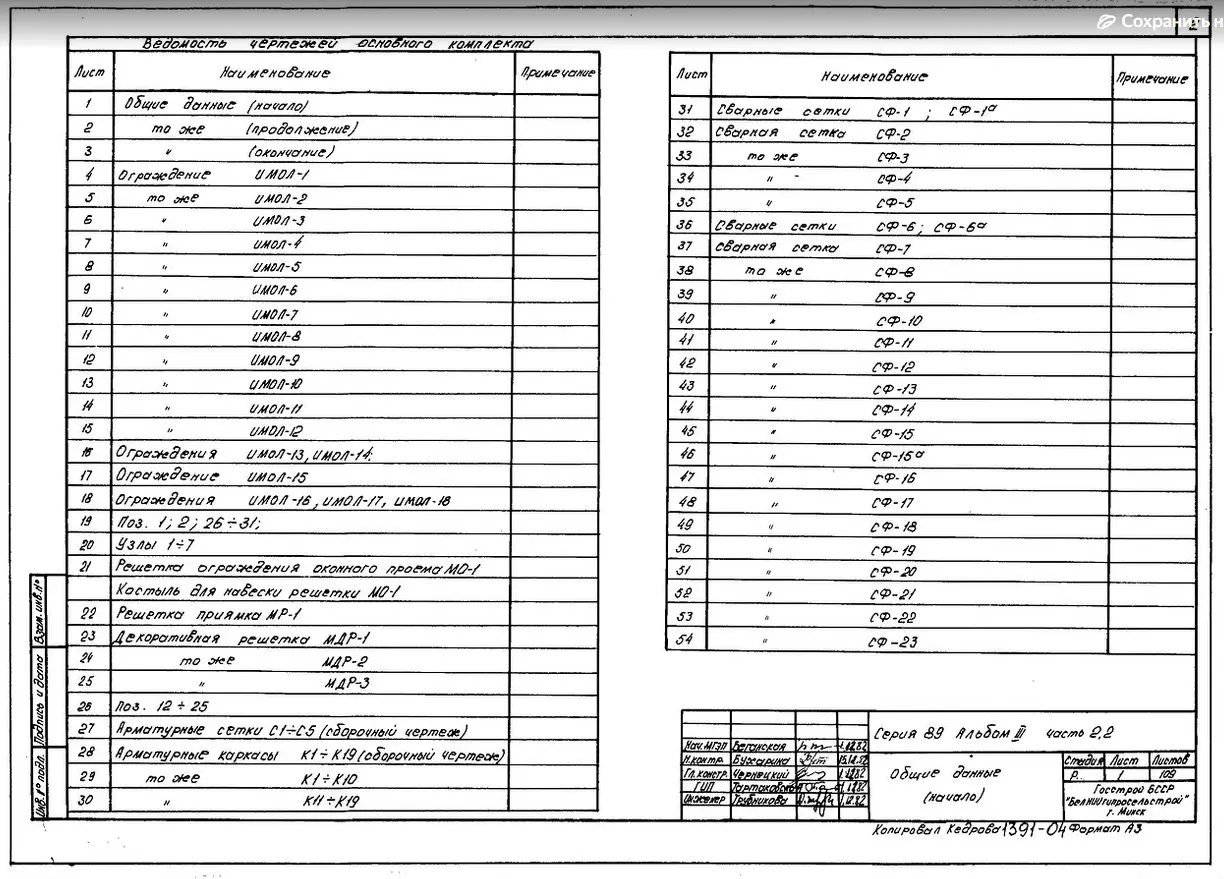 Сохранить н
2
Ведомость чертежей основного комплекта
Лист Наименование Примечание
1 Общие данные (начало)
2 то же (продолжение)
3 " (окончание)
4 Ограждение ИМОЛ-1
5 то же ИМОЛ-2
6 " ИМОЛ-3
7 " ИМОЛ-4
8 " ИМОЛ-5
9 " ИМОЛ-6
10 " ИМОЛ-7
11 " ИМОЛ-8
12 " ИМОЛ-9
13 " ИМОЛ-10
14 " ИМОЛ-11
15 " ИМОЛ-12
16 Ограждения ИМОЛ-13, ИМОЛ-14;
17 Ограждение ИМОЛ-15
18 Ограждения ИМОЛ-16, ИМОЛ-17, ИМОЛ-18
19 Поз. 1; 2; 26÷31;
20 Узлы 1÷7
21 Решетка ограждения оконного проема МО-1
Костыль для навески решетки МО-1
22 Решетка приямка МР-1
23 Декоративная решетка МДР-1
24 то же МДР-2
25 " МДР-3
26 Поз. 12÷25
27 Арматурные сетки С1÷С5 (сборочный чертеж)
28 Арматурные каркасы К1÷К19 (сборочный чертеж)
29 то же К1÷К10
30 " К11÷К19
Лист Наименование Примечание
31 Сварные сетки СФ-1; СФ-1а
32 Сварная сетка СФ-2
33 то же СФ-3
34 " СФ-4
35 " СФ-5
36 Сварные сетки СФ-6; СФ-6а
37 Сварная сетка СФ-7
38 то же СФ-8
39 " СФ-9
40 " СФ-10
41 " СФ-11
42 " СФ-12
43 " СФ-13
44 " СФ-14
45 " СФ-15
46 " СФ-15а
47 " СФ-16
48 " СФ-17
49 " СФ-18
50 " СФ-19
51 " СФ-20
52 " СФ-21
53 " СФ-22
54 " СФ-23
Взам. инв.№
Подпись и дата
Инв.№ подл.
Нач.МГЭП Беганская 1.12.82
Н.контр. Бухарина 15.12.82
Гл.констр. Чернецкий 1.12.82
ГИП 1.12.82
Инженер Трубникова 1.12.82
Серия 89 Альбом III часть 2.2
Общие данные
(начало)
Стадия Лист Листов
Р 1 109
Госстрой БССР
"БелНИИгипросельстрой"
г. Минск
Копировал Кедрова 1391-04 Формат А3